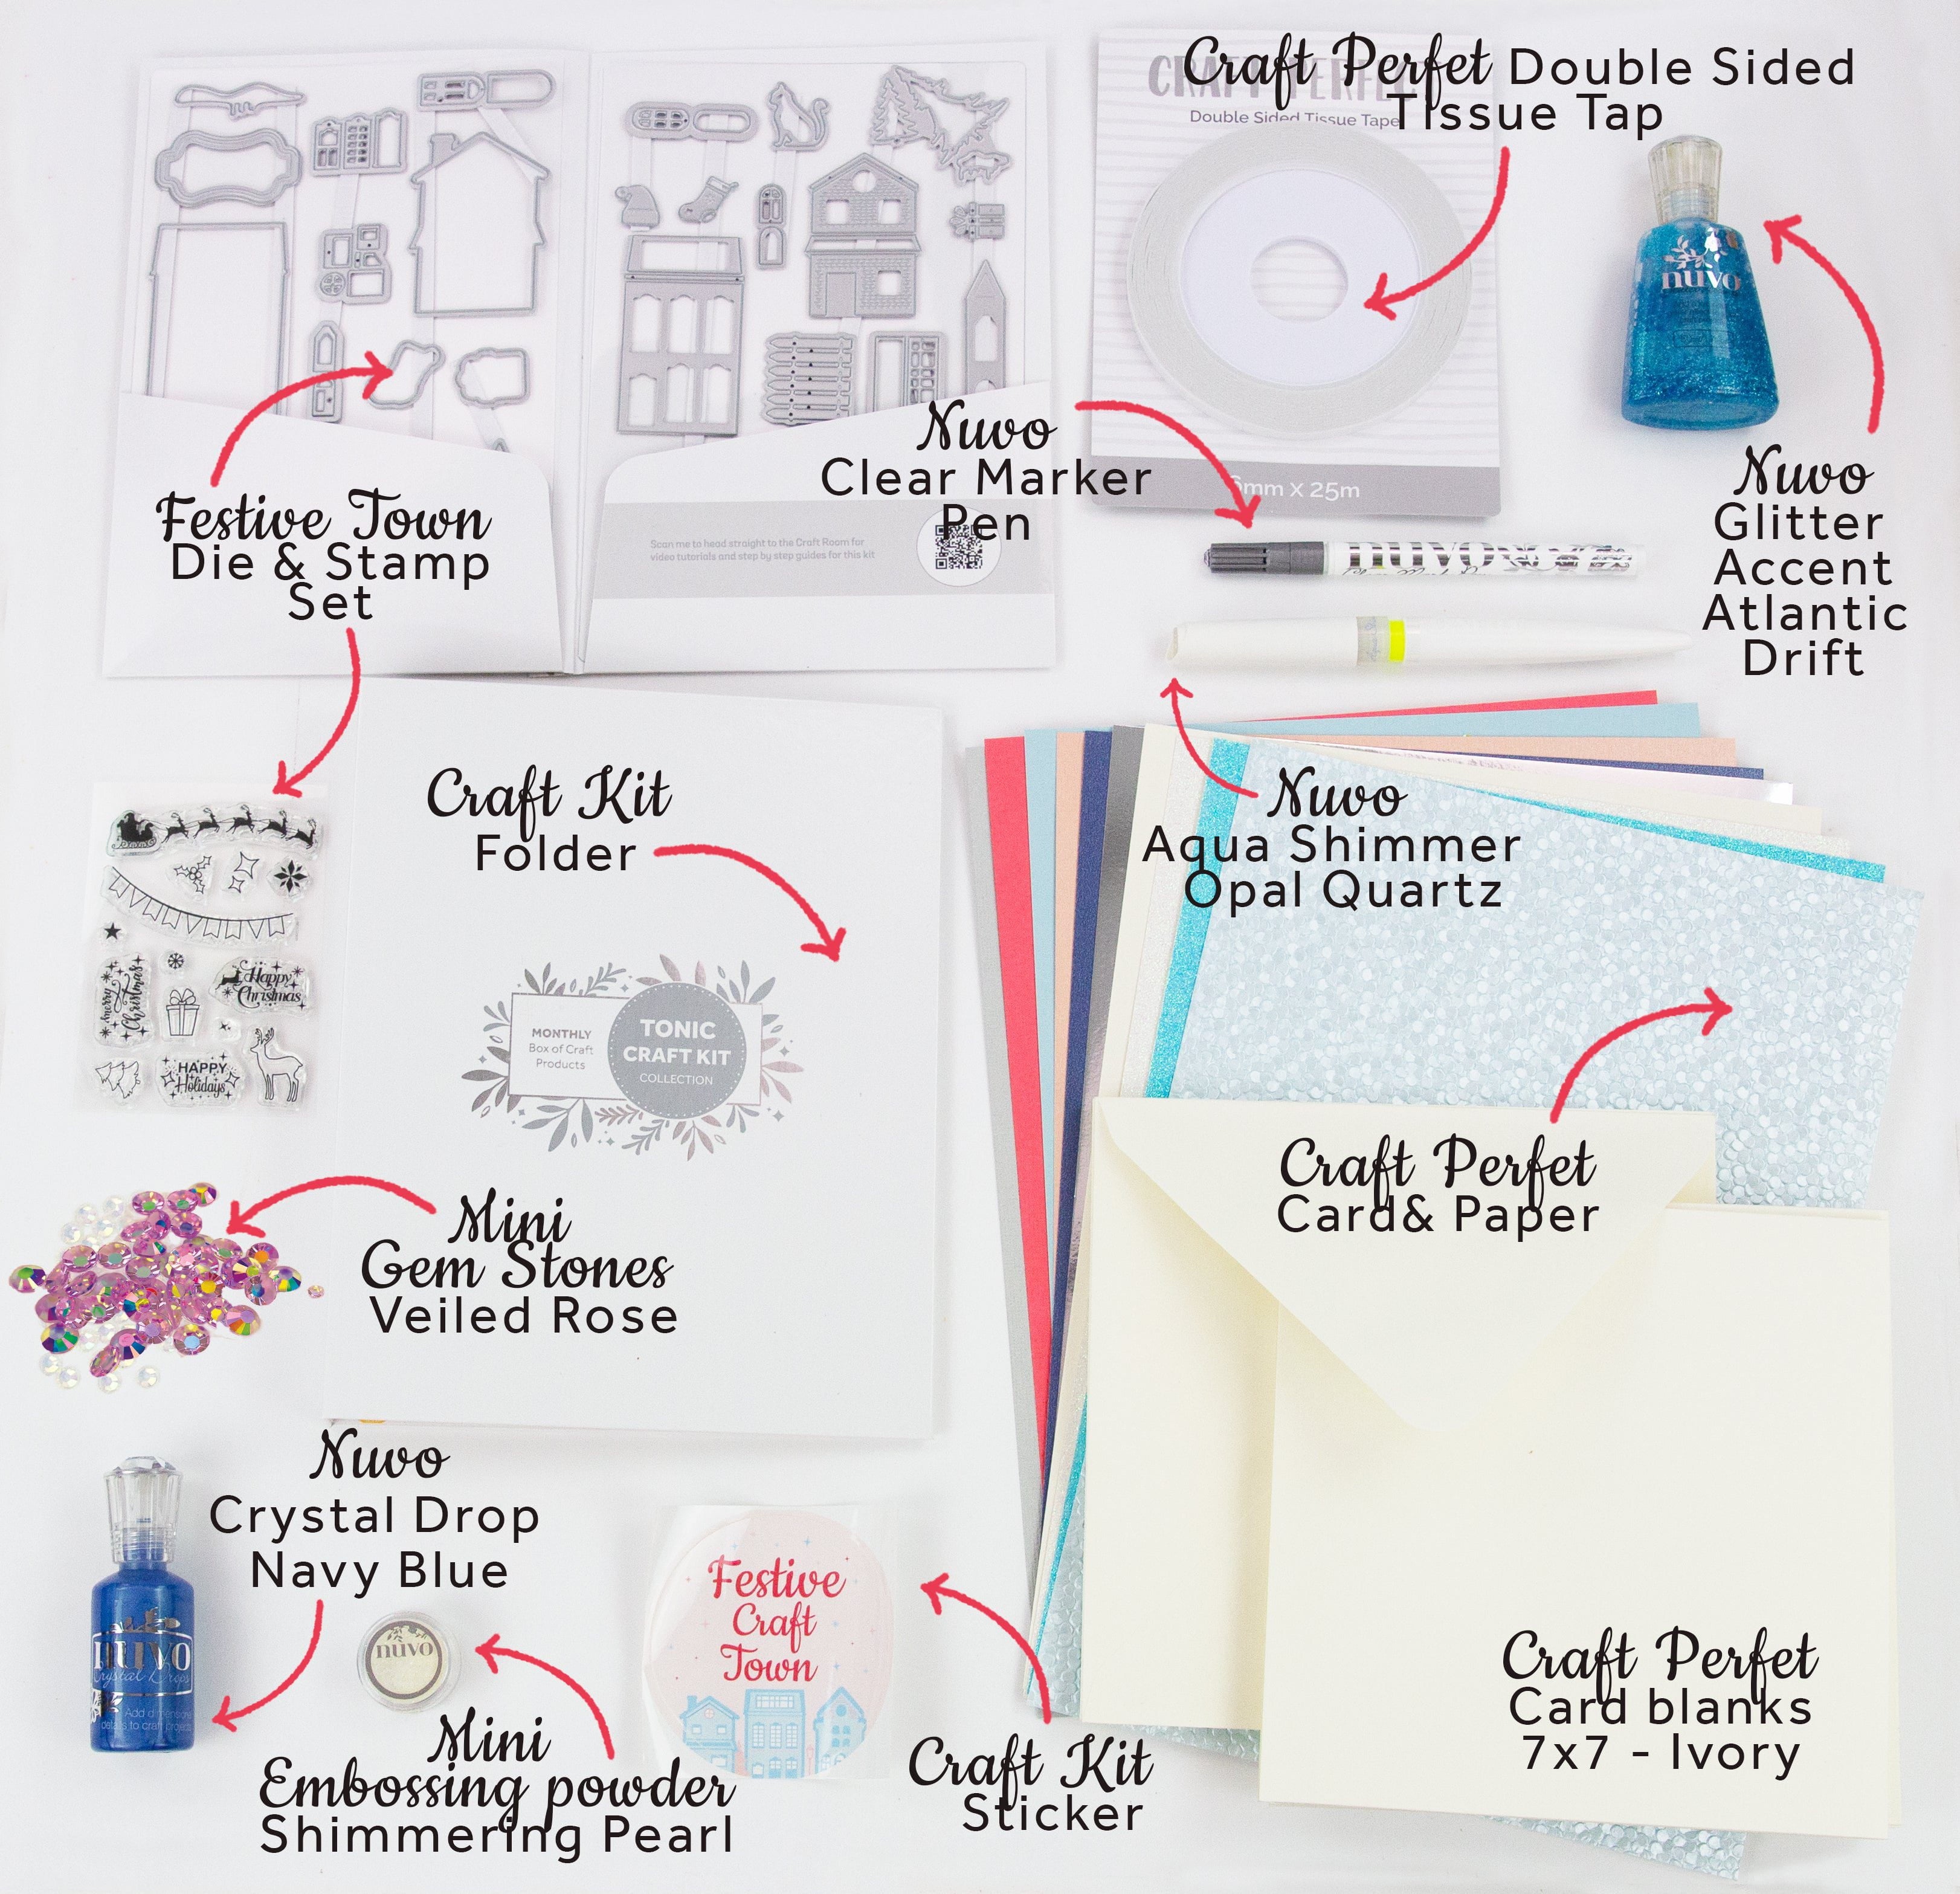 Craft Perfet Double Sided
Tissue Tap
CRAFT PERFECT
Double Sided Tissue Tape
6mm x 25m
nuvo
Nuvo
Glitter
Accent
Atlantic
Drift
Nuvo
Clear Marker
Pen
nuvo
Scan me to head straight to the Craft Room for
video tutorials and step by step guides for this kit
Festive Town
Die & Stamp
Set
Craft Kit
Folder
MONTHLY
Box of Craft
Products
TONIC
CRAFT KIT
COLLECTION
Nuvo
Aqua Shimmer
Opal Quartz
Merry
Christmas
Happy
Christmas
HAPPY
Holidays
Craft Perfet
Card& Paper
Mini
Gem Stones
Veiled Rose
Nuvo
Crystal Drop
Navy Blue
nuvo
Crystal Drops
Add dimensional
details to craft projects
nuvo
Mini
Embossing powder
Shimmering Pearl
Festive
Craft
Town
Craft Kit
Sticker
Craft Perfet
Card blanks
7x7 - Ivory